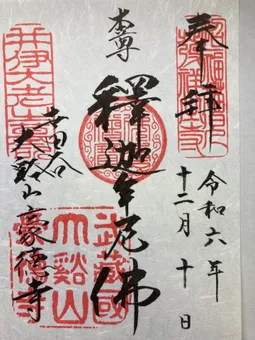 奉拝
令和六年
十二月十日
本尊
釋迦牟尼佛
世田谷
大谿山豪德寺
井伊大老
武蔵國
大谿山